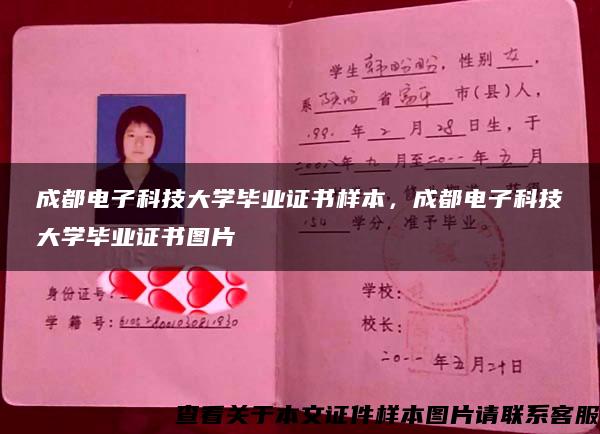 学生韩盼盼，性别女，
系陕西省富平市(县)人，
1991年2月28日生，于
二00八年九月至二0一一年五月
成都电子科技大学毕业证书样本，成都电子科技
大学毕业证书图片
154学分，准予毕业。
身份证号:
学籍号:
学校:
校长:
二0一一年五月二十日
查看关于本文证件样本图片请联系客服